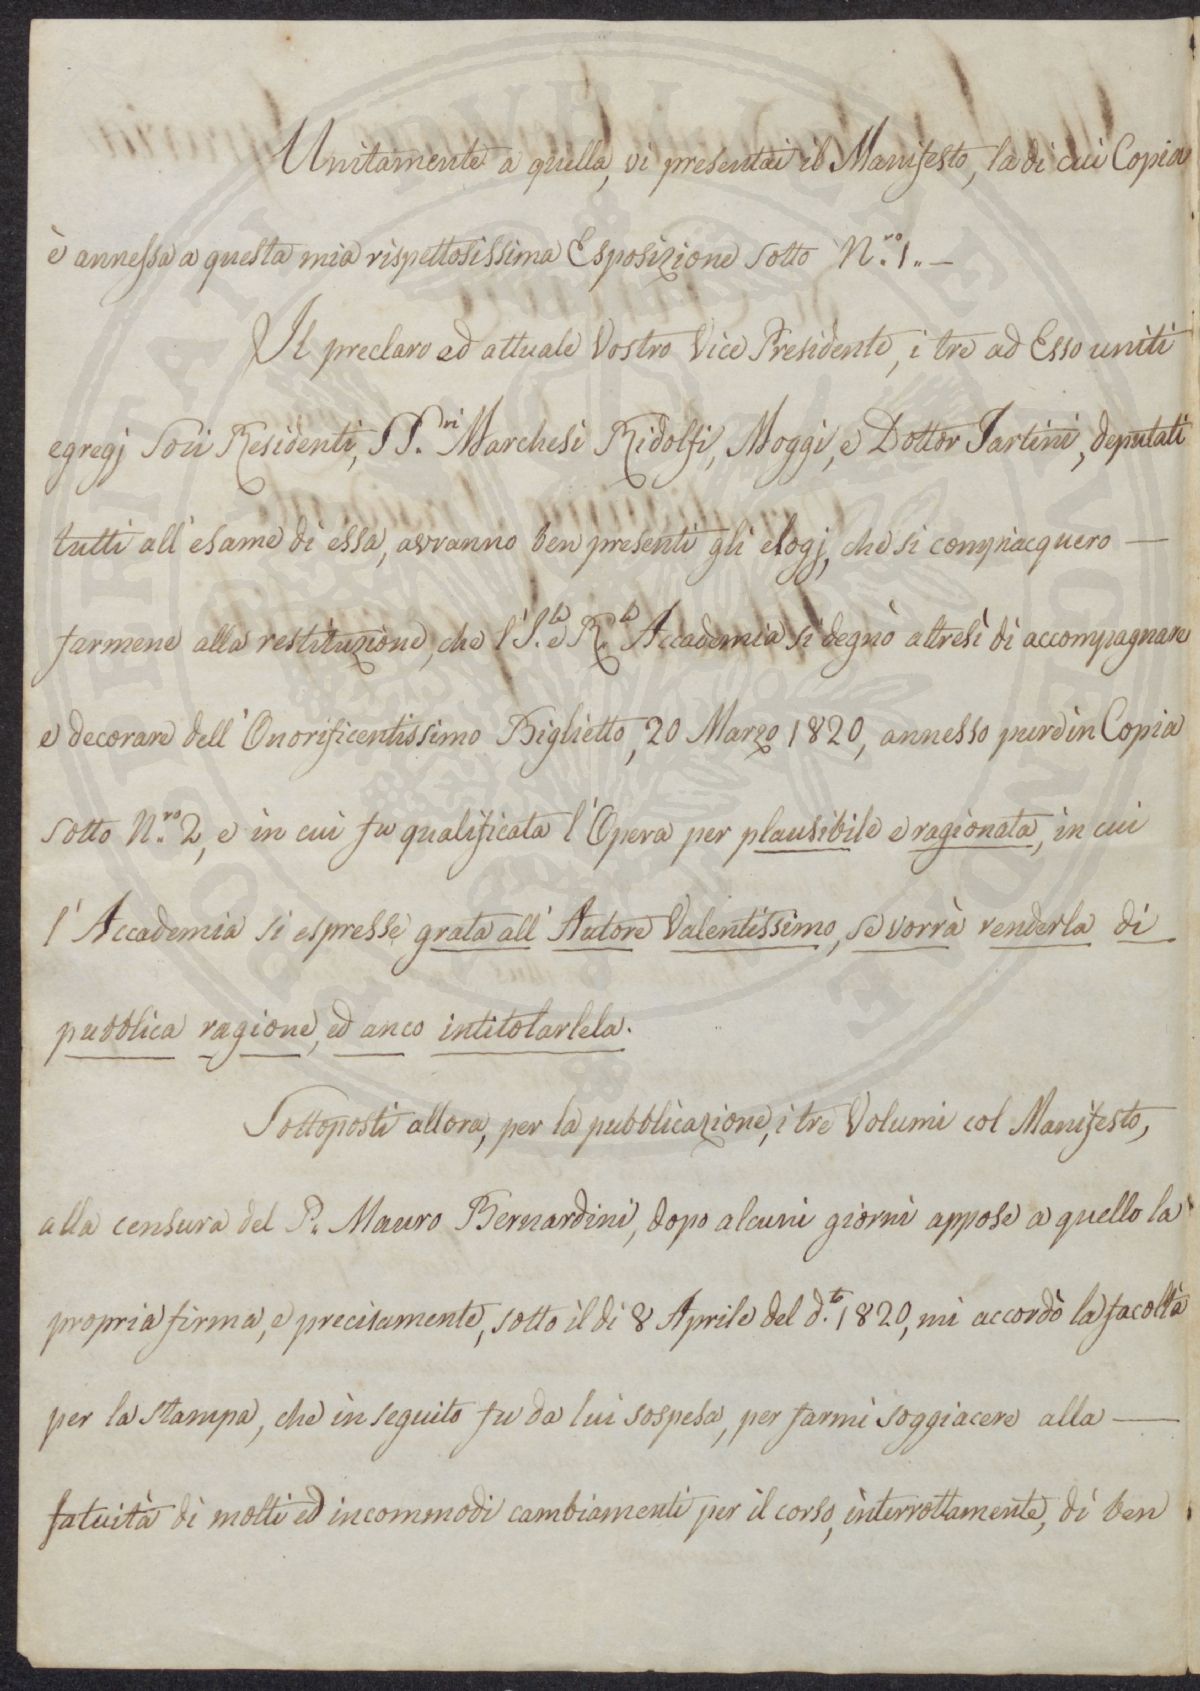 Unitamente a quella, vi presentai il Manifesto, la di cui Copia
è annessa a questa mia rispettosissima Esposizione sotto N.ro 1. —
Il preclaro ed attuale Vostro Vice Presidente, i tre ad Esso uniti
egregj Socii Residenti, SS.ri Marchesi Ridolfi, Moggi, e Dottor Tartini, deputati
tutti all'esame di essa, avranno ben presenti gli elogj, che si compiacquero —
farmene alla restituzione, che l'I. e R. Accademia si degnò altresì di accompagnare
e decorare dell'Onorificentissimo Biglietto, 20 Marzo 1820, annesso pure in Copia
sotto N.ro 2, e in cui fu qualificata l'Opera per plausibile e ragionata, in cui
l'Accademia si espresse grata all'Autore Valentissimo, se vorrà renderla di
pubblica ragione, ed anco intitolarlela.
Sottoposti allora, per la pubblicazione, i tre Volumi col Manifesto,
alla censura del P. Mauro Bernardini, dopo alcuni giorni appose a quello la
propria firma, e precisamente, sotto il di 8 Aprile del d.to 1820, mi accordò la facoltà
per la stampa, che in seguito fu da lui sospesa, per farmi soggiacere alla —
fatuità di molti ed incommodi cambiamenti per il corso, interrottamente, di ben